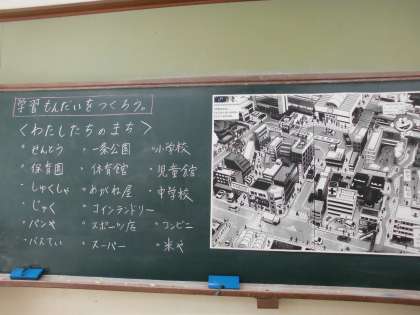 学習もんだいをつくろう。
〈わたしたちのまち〉
・せんとう ・一条公園 ・小学校
・保育園 ・体育館 ・児童館
・しゃくしゃ ・めがね屋 ・中学校
・じゅく ・コインランドリー
・パンや ・スポーツ店 ・コンビニ
・バスてい ・スーパー ・米や